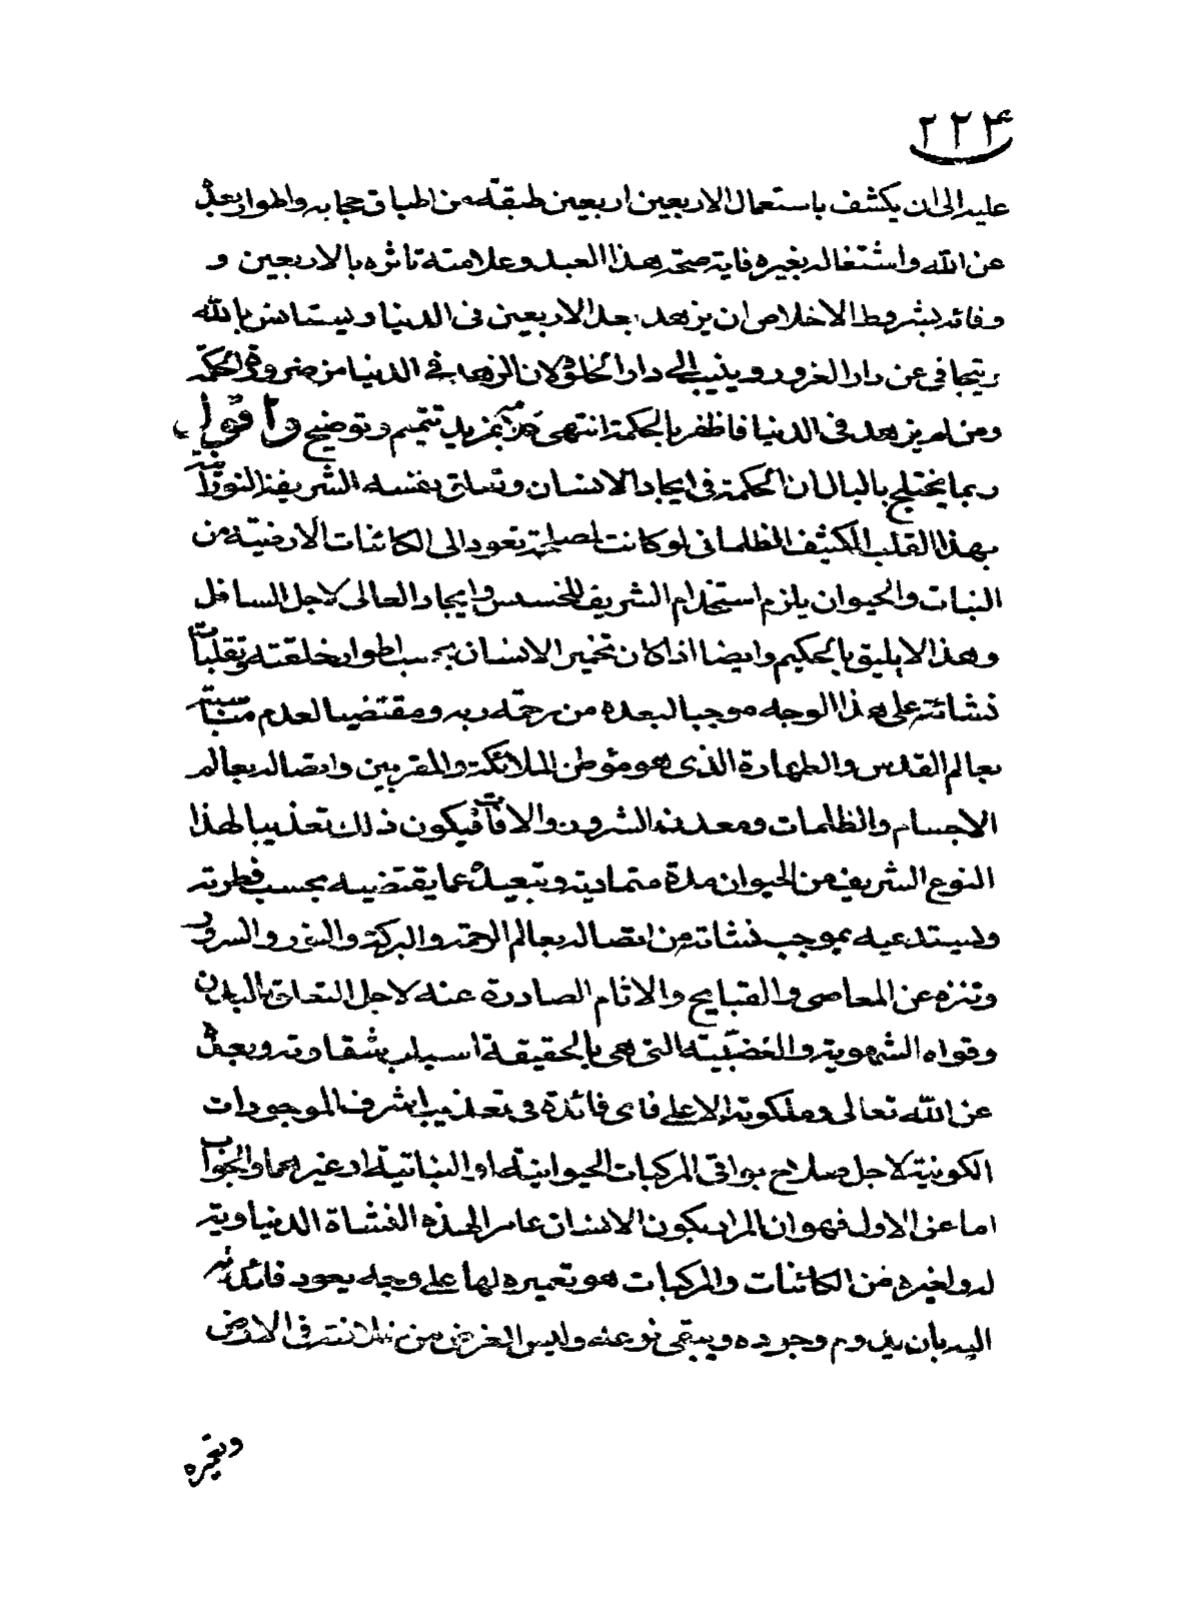 ٢٢٤
عليه الى ان يكشف باستعمال الاربعين اربعين طبقة من اطباق حجابه واطوار بعده
عن الله واشتغاله بغيره فاية صحة هذا العبد وعلامة تاثره بالاربعين و
وفائه بشروط الاخلاص ان يزهد بعد الاربعين فى الدنيا ويستانس بالله
ويتجافى عن دار الغرور وينيب الى دار الخلود لان الزهد فى الدنيا من ضرورة الحكمة
ومن لم يزهد فى الدنيا فاظفر بالحكمة انتهى بمزيد تتميم وتوضيح واقول
ربما يختلج بالبال ان الحكمة فى ايجاد الانسان وتعلق نفسه الشريفة النورانية
بهذا القلب الكثيف الظلمانى لو كانت لمصلحة تعود الى الكائنات الارضية من
النبات والحيوان يلزم استخدام الشريف للخسيس وايجاد العالى لاجل السافل
وهذا لا يليق بالحكيم وايضا اذا كان تخمير الانسان بحسب اطوار خلقته وتقلبات
نشائته على هذا الوجه موجبا لبعده من رحمة ربه ومقتضيا لعدم مناسبته
بعالم القدس والطهارة الذى هو موطن الملائكة والمقربين واتصاله بعالم
الاجسام والظلمات ومعدن الشرور والافات فيكون ذلك تعذيبا لهذا
النوع الشريف من الحيوان مدة متمادية وتبعيده عما يقتضيه بحسب فطرته
ويستدعيه بموجب نشاته من اتصاله بعالم الرحمة والبركة والنور والسرور
وتنزه عن المعاصى والقبايح والاثام الصادرة عنه لاجل التعلق بالبدن
وقواه الشهوية والغضبية التى هى بالحقيقة اسباب شقاوته وبعده
عن الله تعالى وملكوته الاعلى فاى فائدة فى تعذيب اشرف الموجودات
الكونية لاجل صلاح بواقى المركبات الحيوانية او النباتية او غيرهما والجواب
اما عن الاول فهو ان المراد بكون الانسان عامرا لهذه النشاة الدنياوية
له ولغيره من الكائنات والمركبات هو تعميره لها على وجه يعود فائدته
اليه بان يدوم وجوده ويبقى نوعه وليس الغرض من خلافته فى الارض